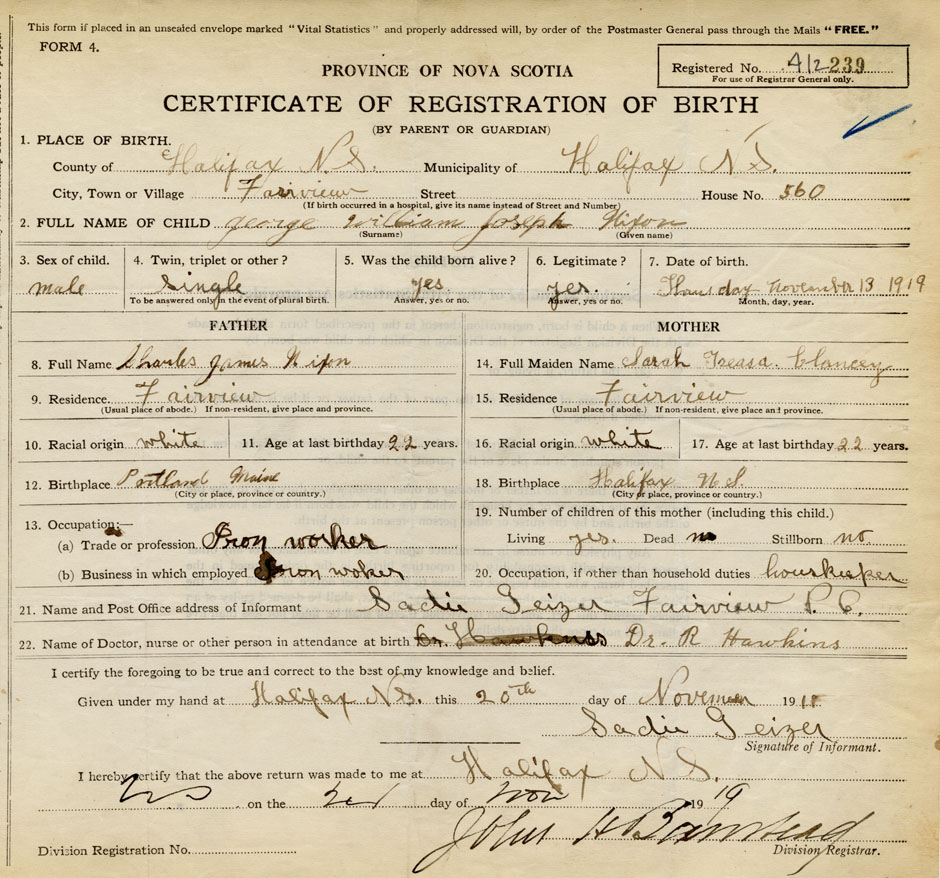 This form if placed in an unsealed envelope marked "Vital Statistics" and properly addressed will, by order of the Postmaster General pass through the Mails "FREE."
FORM 4.
Registered No. 412239
For use of Registrar General only.
PROVINCE OF NOVA SCOTIA
CERTIFICATE OF REGISTRATION OF BIRTH
(BY PARENT OR GUARDIAN)
1. PLACE OF BIRTH.
County of Halifax N.S. Municipality of Halifax N S.
City, Town or Village Fairview Street House No. 560
(If birth occurred in a hospital, give its name instead of Street and Number)
2. FULL NAME OF CHILD george William Joseph Nixon
(Surname) (Given name)
3. Sex of child. 4. Twin, triplet or other? 5. Was the child born alive? 6. Legitimate? 7. Date of birth.
male Single yes yes. November 13 1919
To be answered only in the event of plural birth. Answer, yes or no. Answer, yes or no. Month, day, year.
FATHER MOTHER
8. Full Name Charles James Nixon 14. Full Maiden Name Sarah Clancey
9. Residence. Fairview 15. Residence. Fairview
(Usual place of abode.) If non-resident, give place and province. (Usual place of abode.) If non-resident, give place and province.
10. Racial origin white 11. Age at last birthday 22 years. 16. Racial origin white 17. Age at last birthday 22 years.
12. Birthplace Portland Maine 18. Birthplace Halifax N.S.
(City or place, province or country.) (City or place, province or country.)
13. Occupation:— 19. Number of children of this mother (including this child.)
(a) Trade or profession Iron worker Living yes. Dead no Stillborn no.
(b) Business in which employed Iron woker 20. Occupation, if other than household duties
21. Name and Post Office address of Informant Sadie Geizer Fairview P.O.
22. Name of Doctor, nurse or other person in attendance at birth Dr. R Hawkins
I certify the foregoing to be true and correct to the best of my knowledge and belief.
Given under my hand at Halifax N.S. this 20th day of 19
Sadie Geizer
Signature of Informant.
I hereby certify that the above return was made to me at Halifax N S.
on the day of Nov 1919
John H
Division Registration No. Division Registrar.